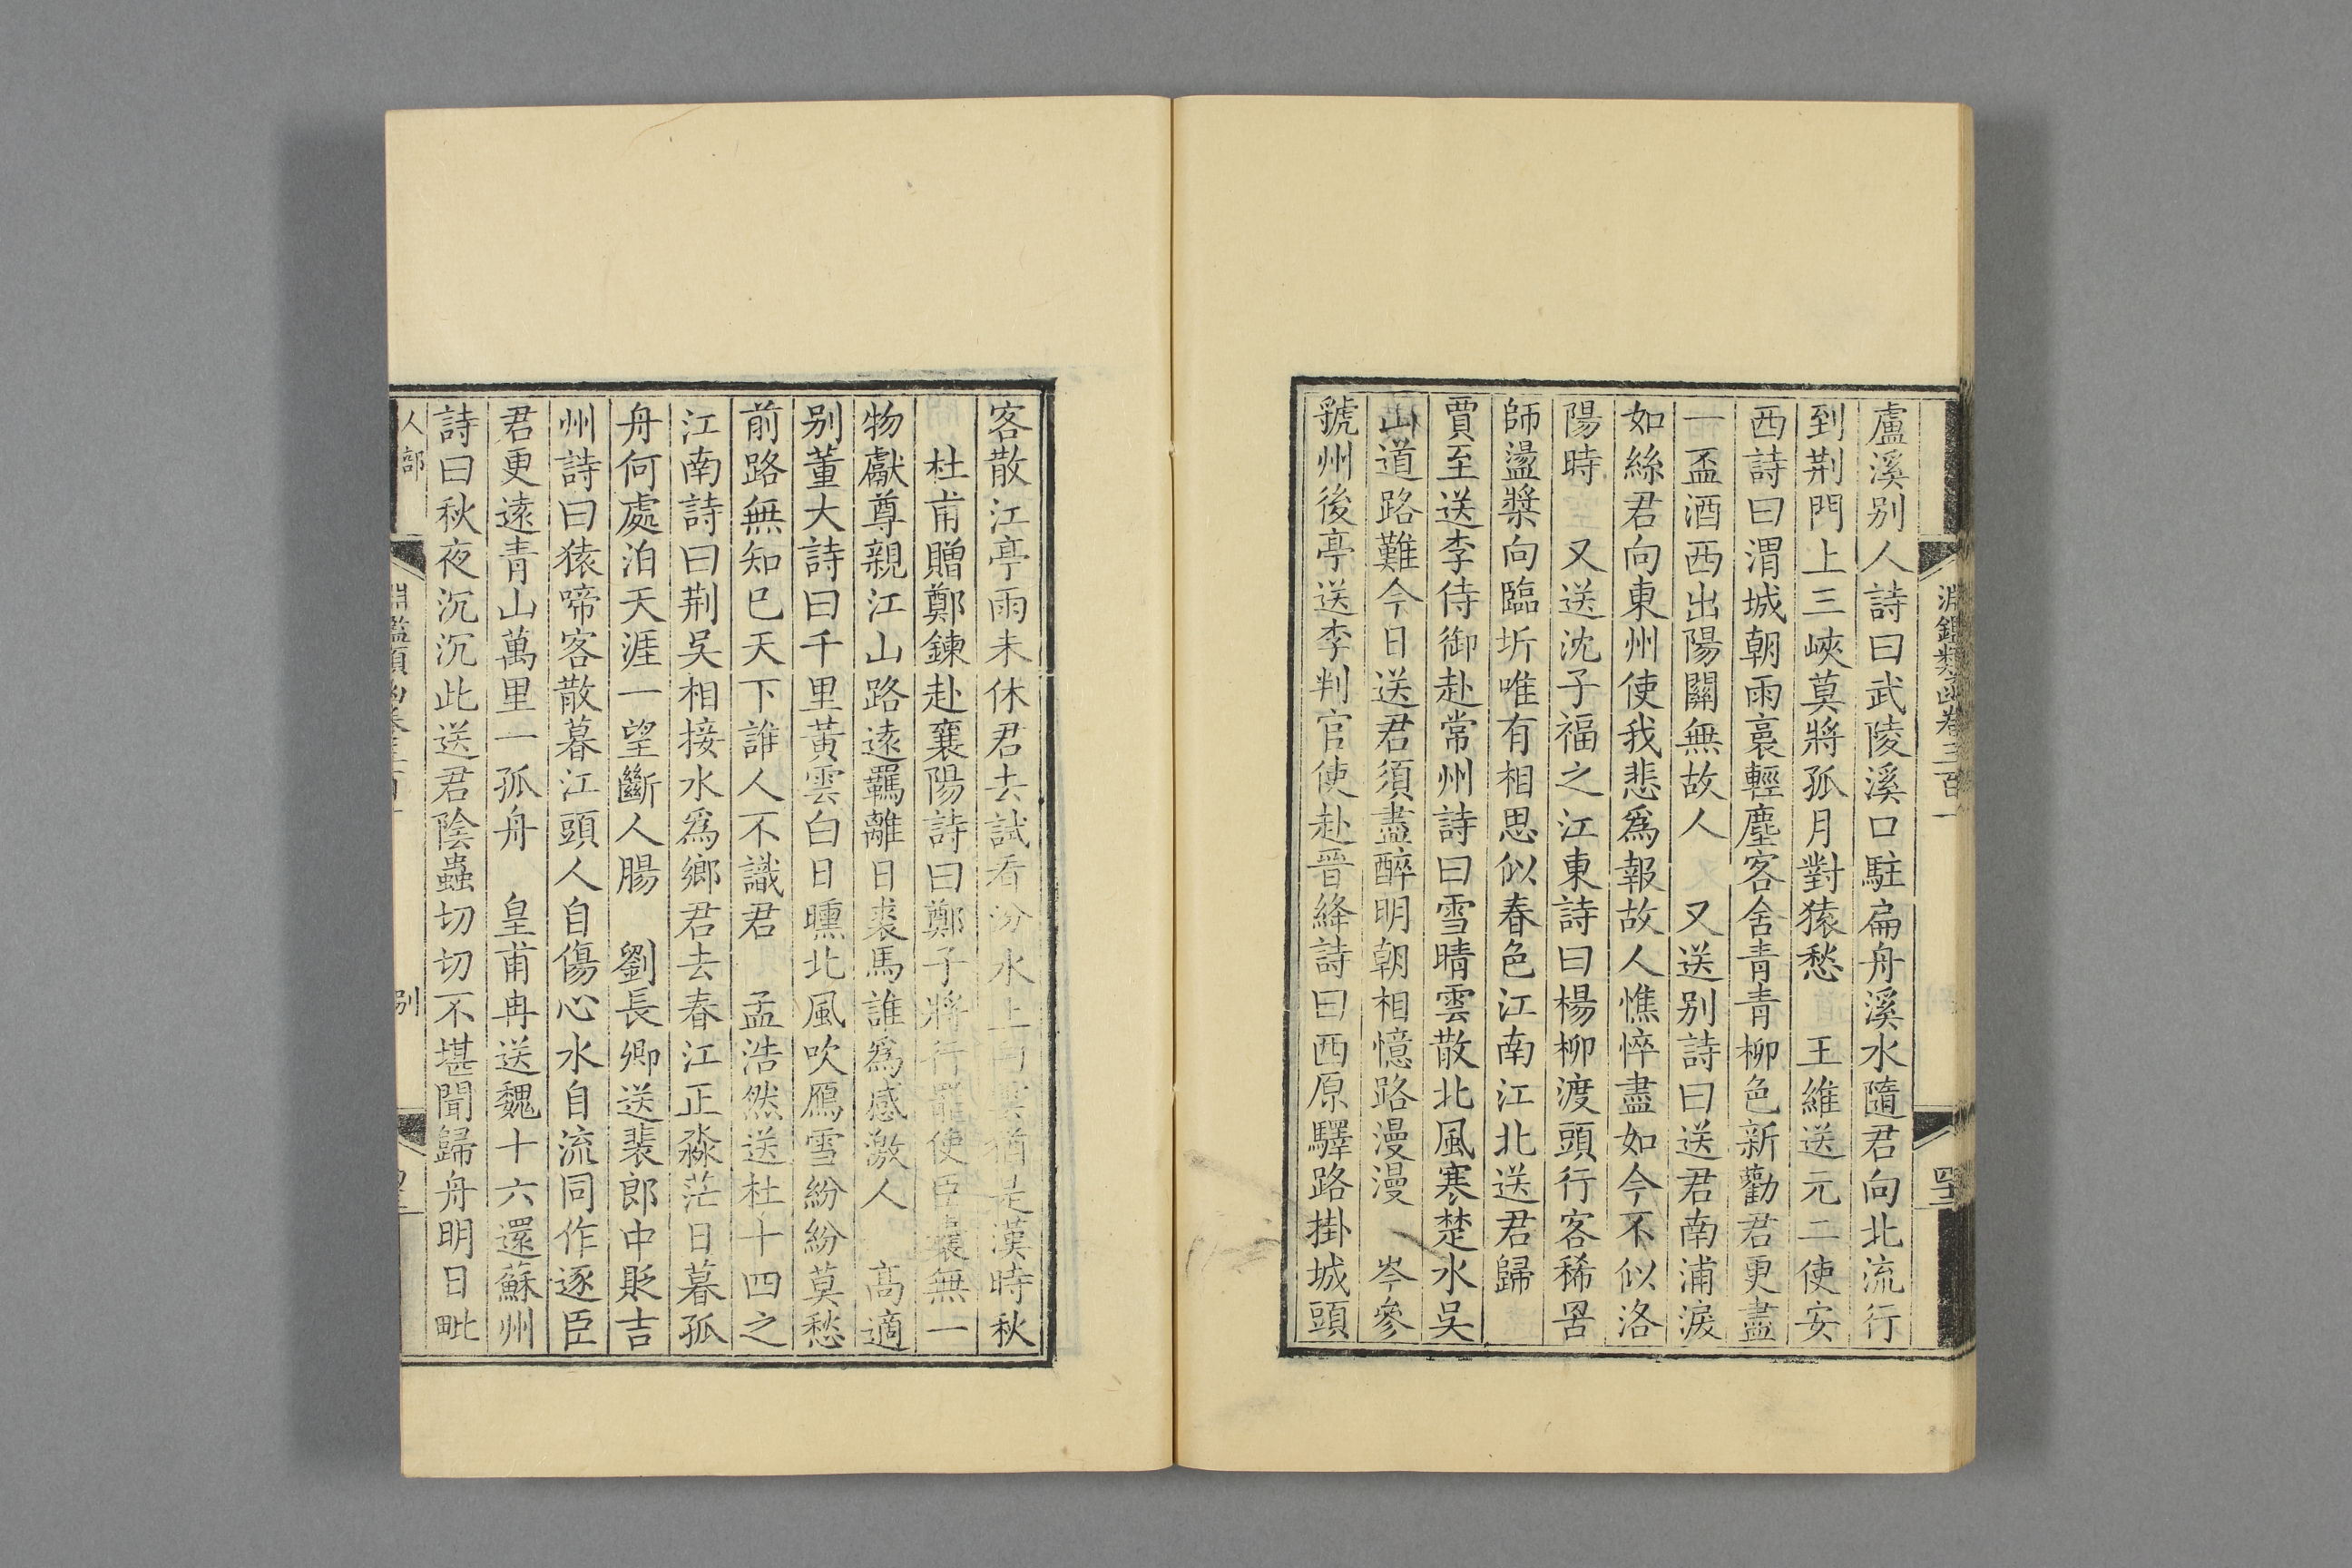 淵鑑類函卷三百一
盧溪別人詩曰武陵溪口駐扁舟溪水隨君向北流行
到荆門上三峽莫將孤月對猿愁　王維送元二使安
西詩曰渭城朝雨裛輕塵客舍青青柳色新勸君更盡
一盃酒西出陽關無故人　又送别詩曰送君南浦淚
如絲君向東州使我悲爲報故人憔悴盡如今不似洛
陽時　又送沈子福之江東詩曰楊柳渡頭行客稀罟
師盪槳向臨圻唯有相思似春色江南江北送君歸
賈至送李侍御赴常州詩曰雪晴雲散北風寒楚水吳
山道路難今日送君須盡醉明朝相憶路漫漫　岑參
虢州後亭送李判官使赴晉絳詩曰西原驛路掛城頭
客散江亭雨未休君去試看汾水上白雲猶是漢時秋
杜甫贈鄭鍊赴襄陽詩曰鄭子將行罷使臣囊無一
物獻尊親江山路遠羈離日裘馬誰爲感激人　高適
别董大詩曰千里黃雲白日曛北風吹鴈雪紛紛莫愁
前路無知已天下誰人不識君　孟浩然送杜十四之
江南詩曰荆吳相接水爲鄉君去春江正淼茫日暮孤
舟何處泊天涯一望斷人腸　劉長卿送裴郎中貶吉
州詩曰猿啼客散暮江頭人自傷心水自流同作逐臣
君更遠青山萬里一孤舟　皇甫冉送魏十六還蘇州
詩曰秋夜沉沉此送君陰蟲切切不堪聞歸舟明日毗
人部　別